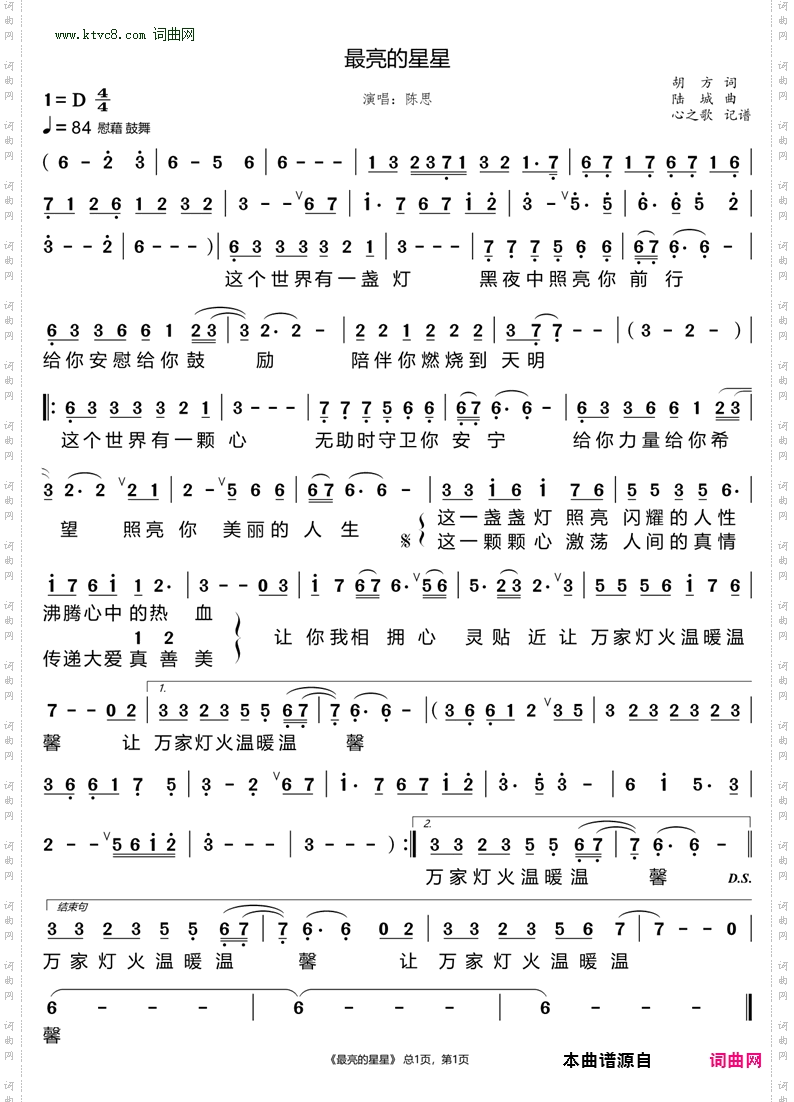 www.ktvc8.com 词曲网
最亮的星星
1= D 4/4
演唱：陈思
胡 方 词
陆 城 曲
心之歌 记谱
♩= 84 慰藉 鼓舞
( 6 - 2 3 | 6 - 5 6 | 6 - - - | 1 3 2 3 7 1 3 2 1· 7 | 6 7 1 7 6 7 1 6 |
7 1 2 6 1 2 3 2 | 3 - - ∨ 6 7 | 1· 7 6 7 1 2 | 3 - ∨ 5· 5 | 6· 6 5 2 |
3 - - 2 | 6 - - - ) | 6 3 3 3 3 2 1 | 3 - - - | 7 7 7 5 6 6 | 6 7 6· 6 - |
这个世界有一盏 灯 黑夜中照亮你 前 行
6 3 3 6 6 1 2 3 | 3 2· 2 - | 2 2 1 2 2 2 | 3 7 7 - - | ( 3 - 2 - ) |
给你安慰给你鼓 励 陪伴你燃烧到 天明
‖: 6 3 3 3 3 2 1 | 3 - - - | 7 7 7 5 6 6 | 6 7 6· 6 - | 6 3 3 6 6 1 2 3 |
这个世界有一颗 心 无助时守卫你 安 宁 给你力量给你希
3 2· 2 ∨ 2 1 | 2 - ∨ 5 6 6 | 6 7 6· 6 - | 3 3 1 6 1 7 6 | 5 5 3 5 6· |
望 照亮 你 美丽的 人 生
这一盏盏灯 照亮 闪耀的人性
这一颗颗心 激荡 人间的真情
1 7 6 1 1 2· | 3 - - 0 3 | 1 7 6 7 6· ∨ 5 6 | 5· 2 3 2· ∨ 3 | 5 5 5 6 1 7 6 |
沸腾心中 的热 血
1 2
传递大爱 真 善 美
让 你我相 拥心 灵贴 近让 万家灯火温暖温
7 - - 0 2 | 1. 3 3 2 3 5 5 6 7 | 7 6· 6 - | ( 3 6 6 1 2 ∨ 3 5 | 3 2 3 2 3 2 3 |
馨 让 万家灯火温暖温 馨
3 6 6 1 7 5 | 3 - 2 ∨ 6 7 | 1· 7 6 7 1 2 | 3· 5 3 - | 6 1 5· 3 |
2 - - ∨ 5 6 1 2 | 3 - - - | 3 - - - ) :‖ 2. 3 3 2 3 5 5 6 7 | 7 6· 6 - ‖
万家灯火温暖温 馨 D.S.
结束句
3 3 2 3 5 5 6 7 | 7 6· 6 0 2 | 3 3 2 3 5 6 7 | 7 - - 0 |
万家灯火温暖温 馨 让 万家灯火温暖温
6 - - - | 6 - - - | 6 - - - ‖
馨
《最亮的星星》 总1页，第1页
本曲谱源自 词曲网